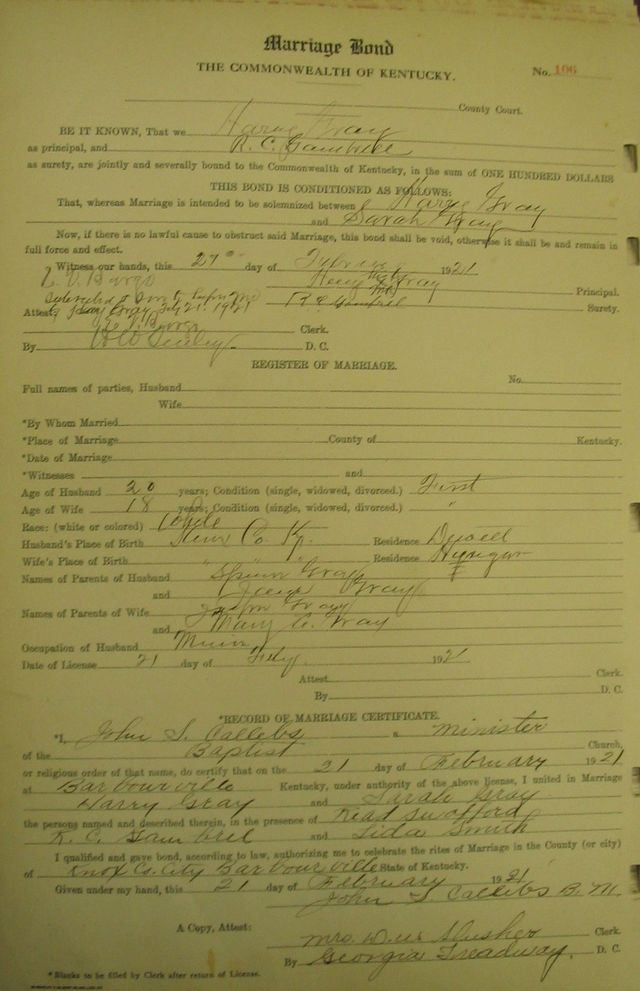 Marriage Bond
THE COMMONWEALTH OF KENTUCKY.
No. 106
County Court.
BE IT KNOWN, That we Harve Gray
as principal, and R. C. Gambrel
as surety, are jointly and severally bound to the Commonwealth of Kentucky, in the sum of ONE HUNDRED DOLLARS
THIS BOND IS CONDITIONED AS FOLLOWS:
That, whereas Marriage is intended to be solemnized between Harve Gray
and Sarah Gray
Now, if there is no lawful cause to obstruct said Marriage, this bond shall be void, otherwise it shall be and remain in
full force and effect.
Witness our hands, this 21 day of February 1921
Gray Principal.
Attest R C Gambrel Surety.
Clerk.
By D. C.
REGISTER OF MARRIAGE.
No.
Full names of parties, Husband
Wife
*By Whom Married
*Place of Marriage County of Kentucky.
*Date of Marriage
*Witnesses and
Age of Husband 20 years; Condition (single, widowed, divorced.) First
Age of Wife 18 years; Condition (single, widowed, divorced.) "
Race: (white or colored) White
Husband's Place of Birth Co. Ky. Residence
Wife's Place of Birth " " " Residence
Names of Parents of Husband Gray
and Gray
Names of Parents of Wife Gray
and Mary C. Gray
Occupation of Husband Miner
Date of License 21 day of Feby. 1921
Attest Clerk.
By D. C.
*RECORD OF MARRIAGE CERTIFICATE.
*I, John S. Callebs a minister
of the Baptist Church,
or religious order of that name, do certify that on the 21 day of February 1921
at Barbourville Kentucky, under authority of the above license, I united in Marriage
Harry Gray and Sarah Gray
the persons named and described therein, in the presence of Read Swafford
R. C. Gambrel and Lida Smith
I qualified and gave bond, according to law, authorizing me to celebrate the rites of Marriage in the County (or city)
of Knox Co. City Barbourville State of Kentucky.
Given under my hand, this 21 day of February 1921
John S Callebs B. M.
A Copy, Attest: Mrs. W. M. Clerk.
By Georgia Treadway. D. C.
*Blanks to be filed by Clerk after return of License.